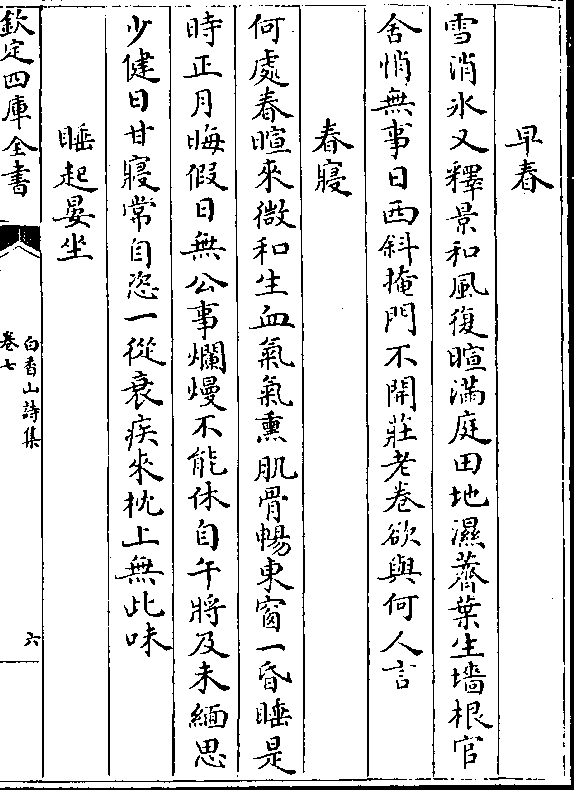 早春
雪消氷又釋景和風復暄滿庭田地濕薺葉生墻根官
舍悄無事日西斜掩門不開莊老卷欲與何人言
春寢
何處春暄來微和生血氣氣熏肌骨暢東窗一昏睡是
時正月晦假日無公事爛熳不能休自午將及未緬思
少健日甘寢常自恣一從衰疾來枕上無此味
睡起晏坐
欽定四庫全書
白香山詩集
卷七
六